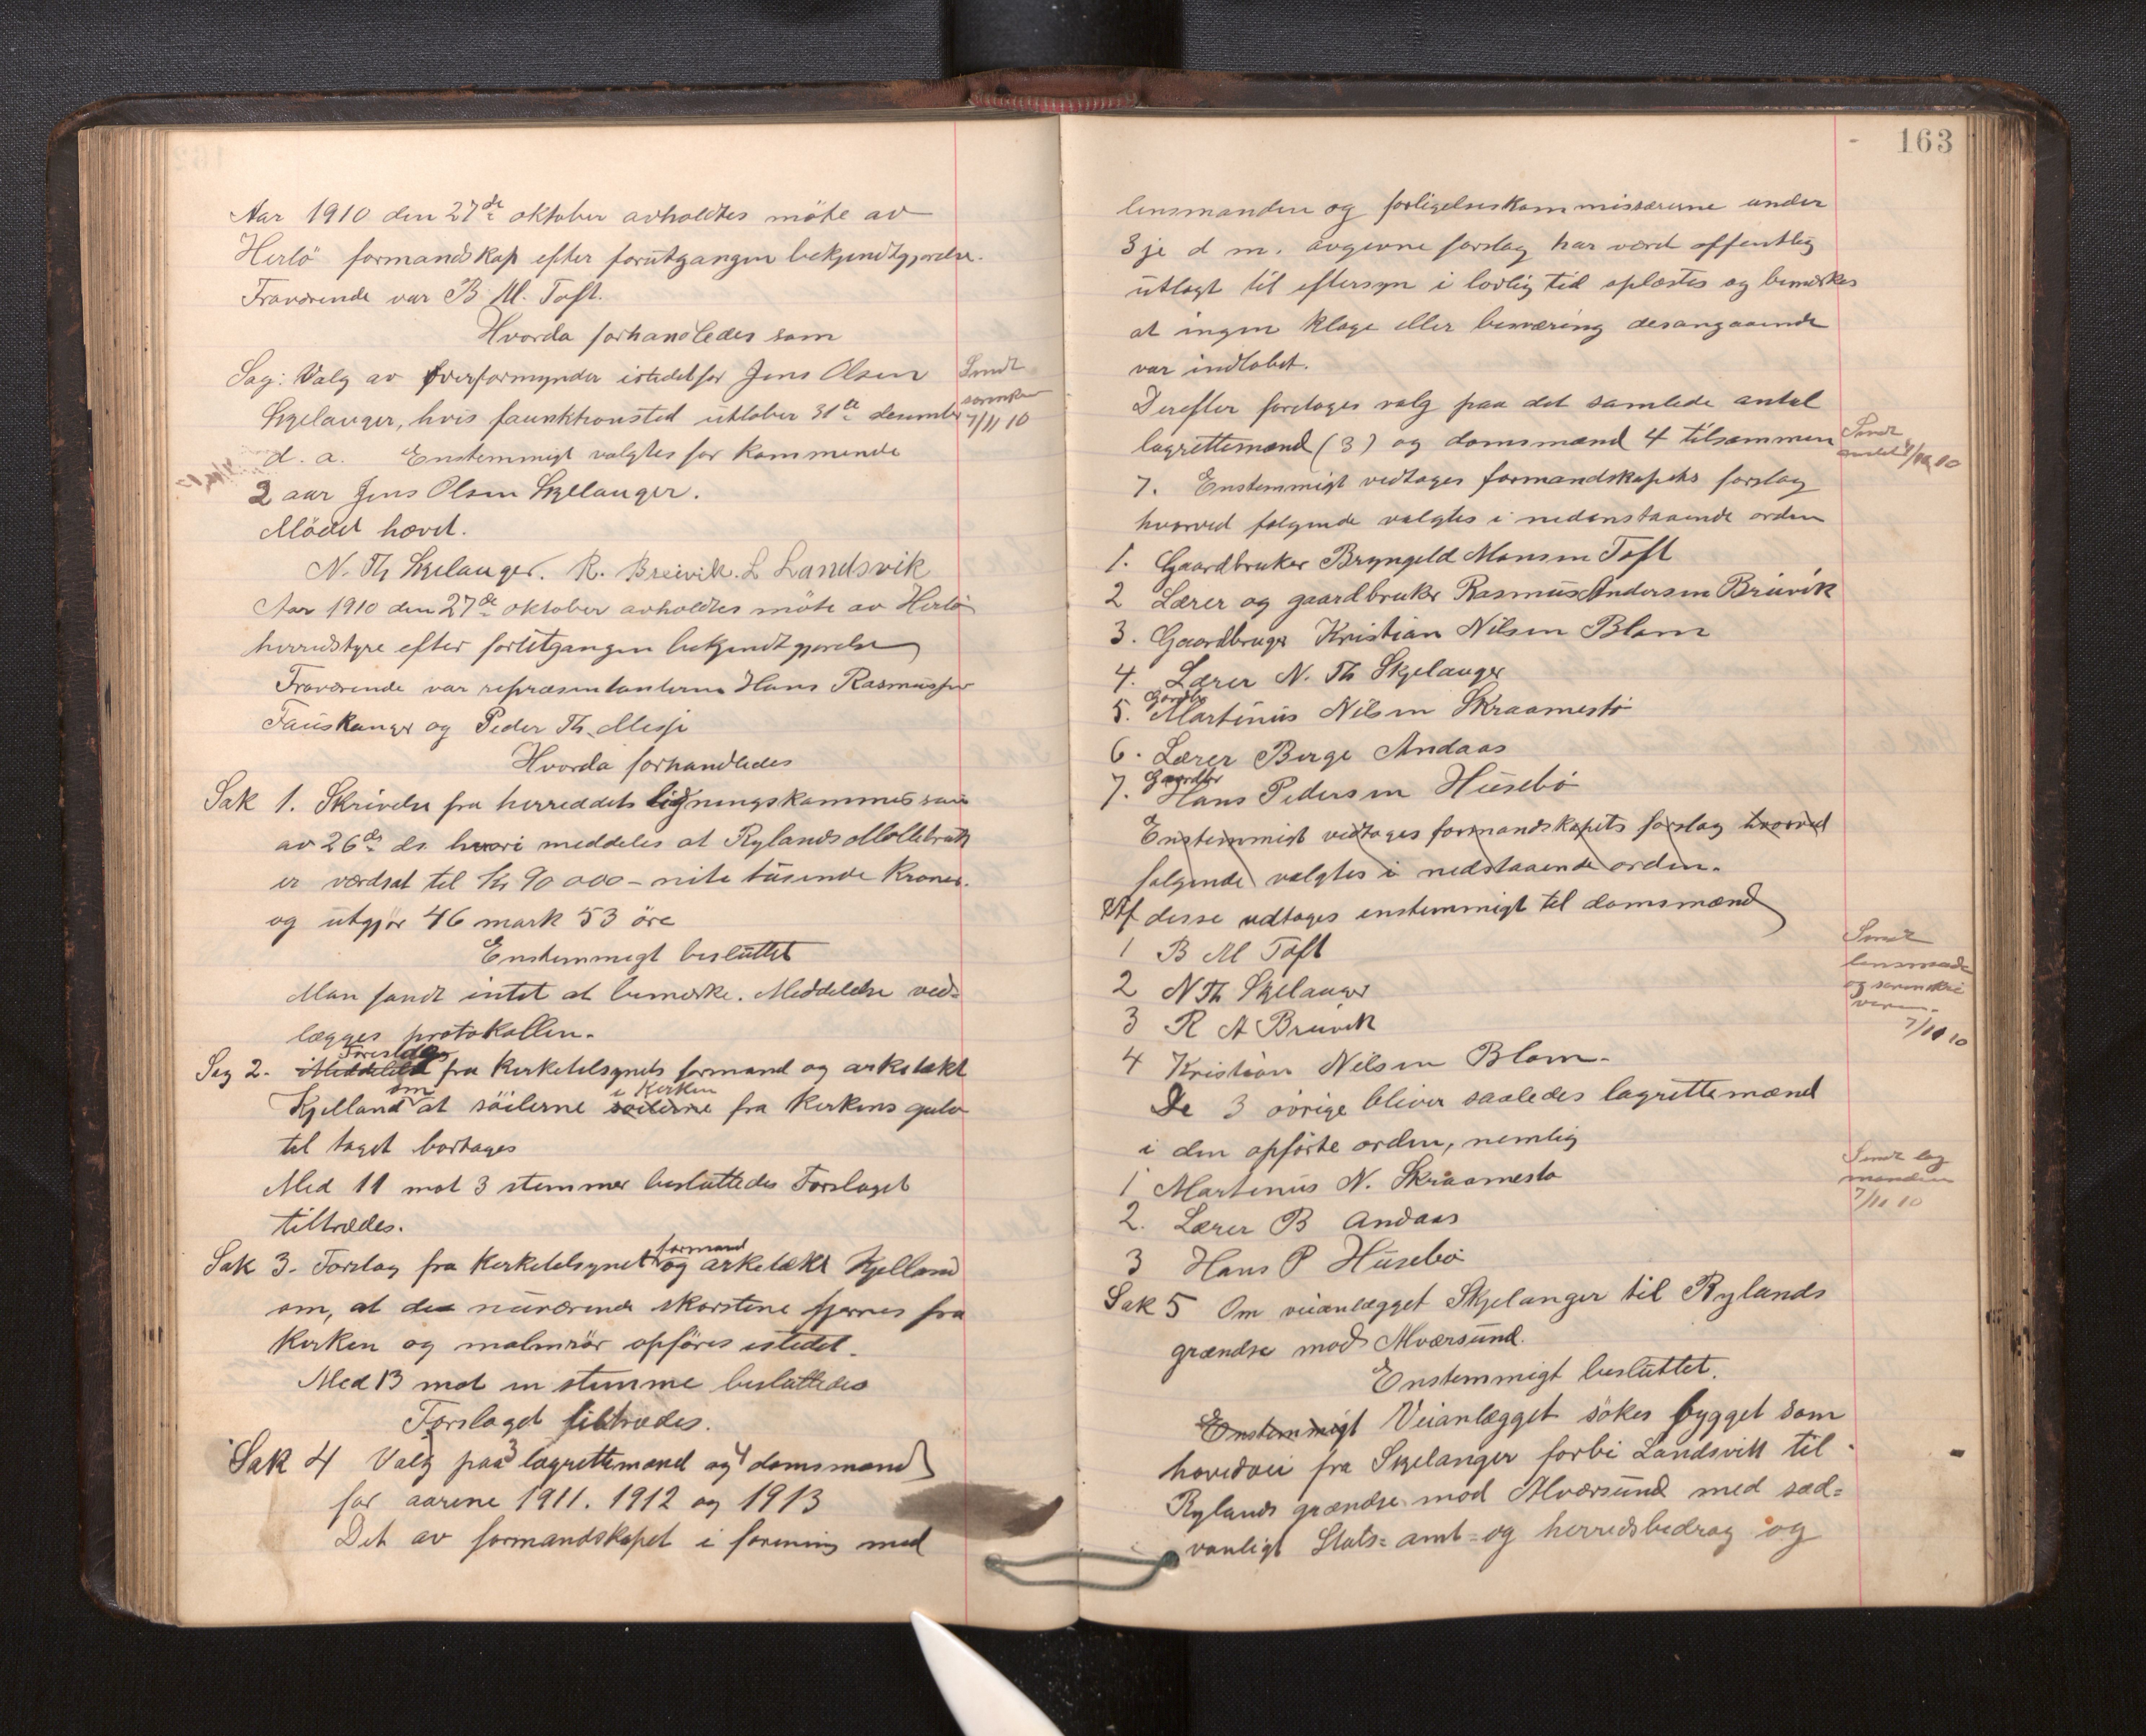 Aar 1910 den 27de oktober avholdtes möte av
Herlö formandskap efter forutgangen bekjendtgjørelse.
Fraværende var B. M. Toft.
Hvorda forhandledes som
Sag: Valg av overformynder istedetfor Jens Olsen
Skjelanger, hvis funktionstid utløber 31te desember
d. a. Enstemmigt valgtes for kommende
2 aar Jens Olsen Skjelanger.
Mödet hævet.
Sendt
sorenskr
7/11 10
N. Th Skjelanger. R. Breivik. L Landsvik
Aar 1910 den 27de oktober avholdtes möte av Herlö
herredstyre efter forutgangen bekjendtgjørelse
Fraværende var repræsentanterne Hans Rasmussen
Fauskanger og Peder Th. Misje
Hvorda forhandledes
Sak 1. Skrivelse fra herredets ligningskommission
av 26de ds. hvori meddeles at Rylands Møllebruk
er værdsat til Kr 90 000 – niti tusende Kroner.
og utgjør 46 mark 53 öre
Enstemmigt besluttet
Man fandt intet at bemærke. Meddelelse ved=
lægges protokollen.
Sag 2. Meddelelse Foreslaaes fra Kirketilsynets formand og arkitekt
Kjelland om at söilerne söilerne i Kirken fra Kirkens gulv
til taget bortages
Med 11 mot 3 stemmer besluttedes Forslaget
tiltrædes.
Sak 3. Forslag fra Kirketilsynets formand og arkitekt Kjelland
om, at de nuværende skorstene fjernes fra
Kirken og malmrör opföres istedet.
Med 13 mot en stemme besluttedes
Forslaget tiltrædes.
Sak 4 Valg paa 3 lagrettemænd og 4 domsmænd
for aarene 1911. 1912 og 1913
Det av formandskapet i forening med
163
lensmanden og forligelseskommissærerne under
3je d m. avgivne forslag har været offentlig
utlagt til eftersyn i lovlig tid oplæstes og bemærkes
at ingen klage eller besværing desangaaende
var indløbet.
Derefter foretages valg paa det samlede antal
lagrettemænd (3) og domsmænd 4 tilsammen
7. Enstemmigt vedtages formandskapets forslag
hvorved følgende valgtes i nedenstaaende orden
1. Gaardbruker Bryngeld Monsen Toft
2 Lærer og gaardbruker Rasmus Andersen Breivik
3. Gaardbruger Kristian Nilsen Blom
4. Lærer N. Th Skjelanger
5. Gaardbr Martinus Nilsen Skraamestø
6. Lærer Berge Andaas
7. Gaardbr Hans Pedersen Husebö
Enstemmigt vedtages formandskapets forslag hvorved
følgende valgtes i nedstaaende orden.
Af desse udtages enstemmigt til domsmænd
1 B M Toft
2 N Th Skjelanger
3 R A Breivik
4 Kristian Nilsen Blom.
Sendt
lensmand
og sorenskri
veren.
7/11 10
De 3 øvrige bliver saaledes lagrettemænd
i den opførte orden, nemlig
1 Martinus N. Skraamestø
2. Lærer B Andaas
3 Hans P Husebö
Sendt lag
manden
7/11 10
Sak 5 Om veianlægget Skjelanger til Rylands
grændse mod Alværsund.
Enstemmigt besluttet.
Enstemmigt Veianlægget sökes bygget som
hovedvei fra Skjelanger forbi Landsvik til
Rylands grændse mod Alværsund med sæd=
vanligt Stats= amt= og herredsbedrag og